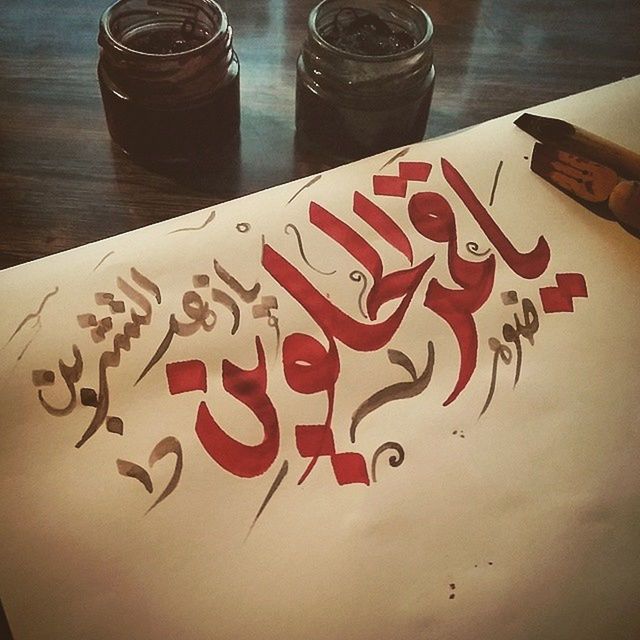 يا قمر الحلوين
يا زهر التشرين